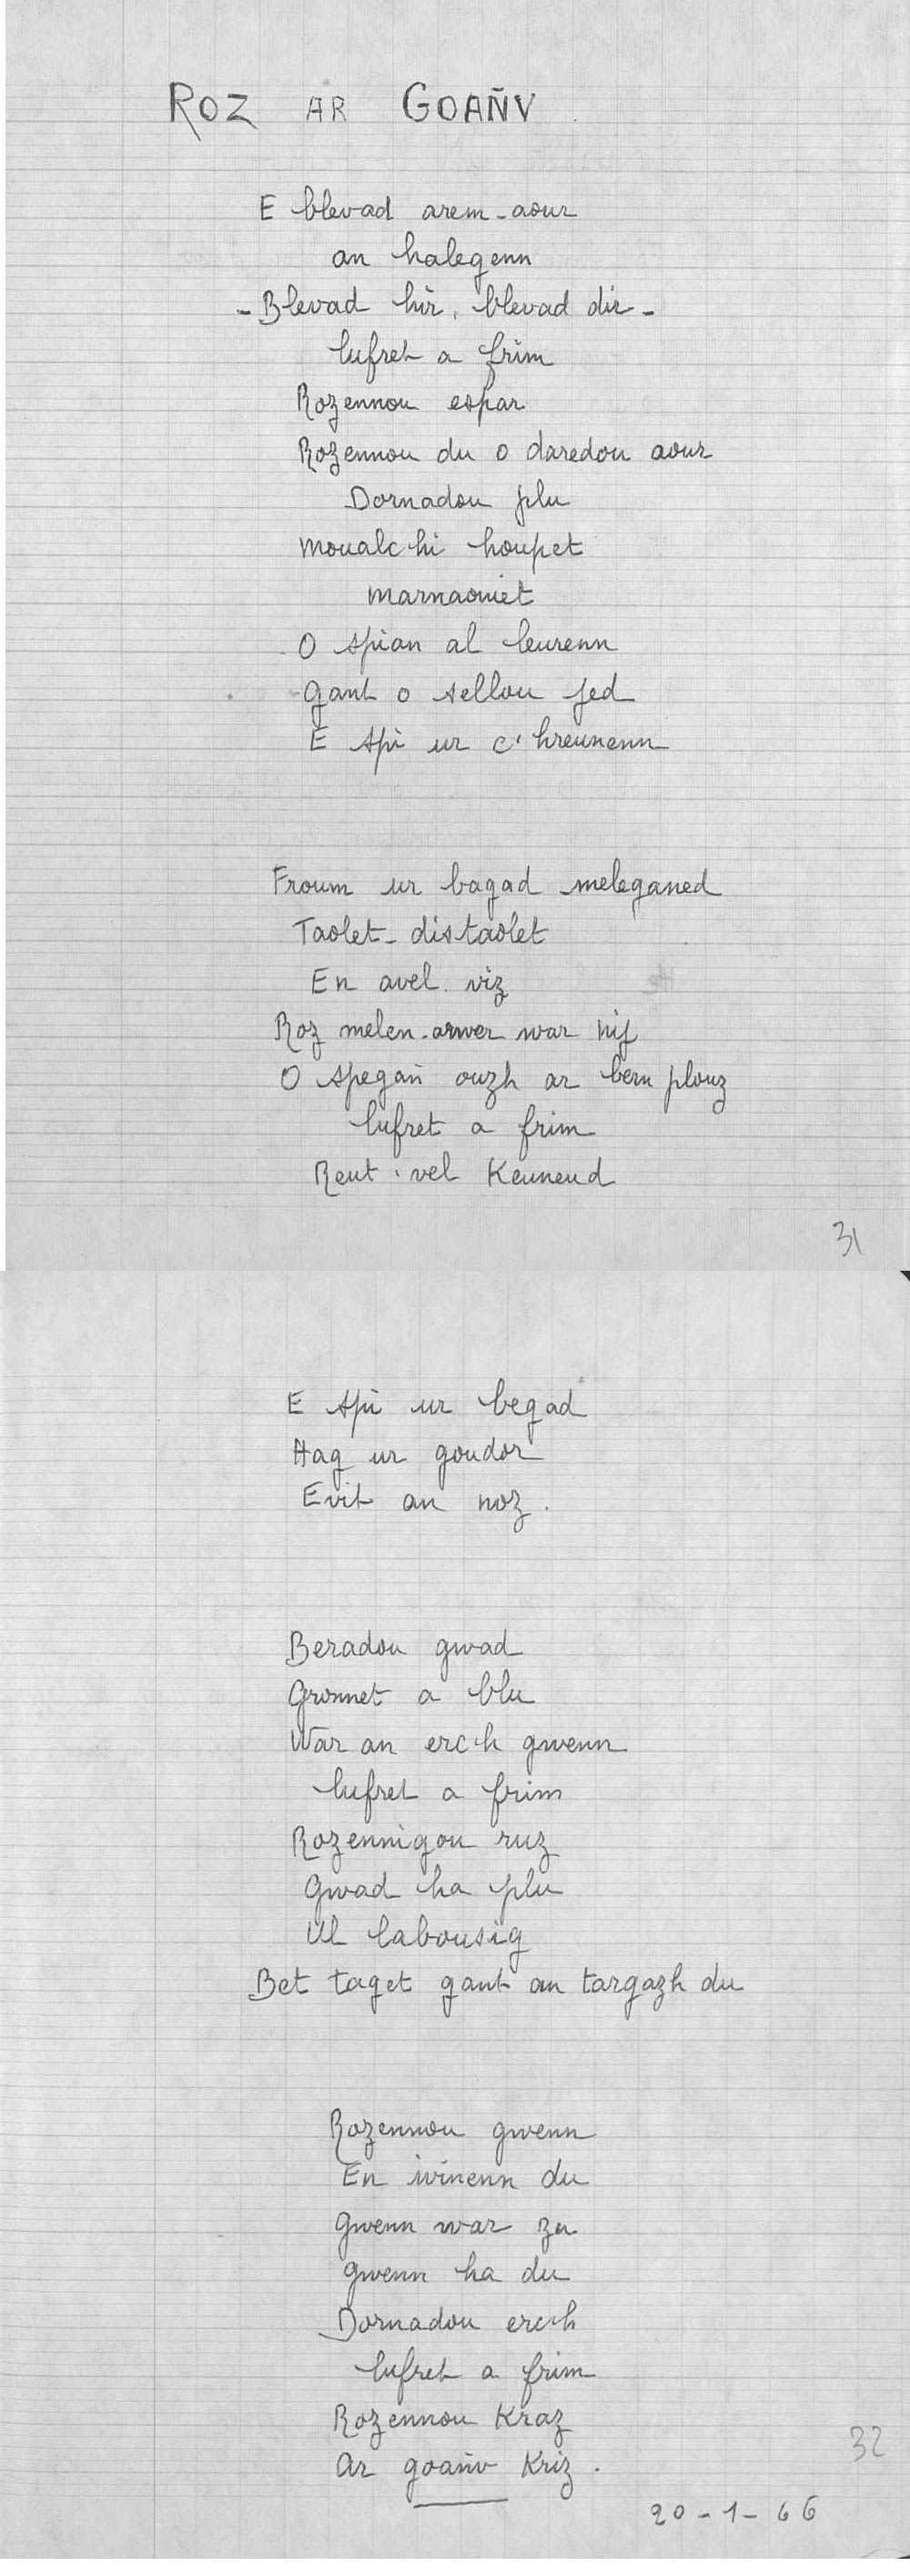 ROZ AR GOAÑV
E blevad arem-aour
an halegenn
- Blevad hir, blevad dir -
lufret a frim
Rozennou espar
Rozennou du o daredou aour
Dornadou plu
Moualc'hi houpet
marnaoniet
O spian al leurenn
Gant o sellou fed
E spi ur c'hreunenn
Froum ur bagad meleganed
Taolet-distaolet
En avel viz
Roz melen-arwer war nij
O spegañ ouzh ar bern plouz
lufret a frim
Reut vel Keuneud
31
E spi ur begad
Hag ur goudor
Evit an noz.
Beradou gwad
Gronnet a blu
War an erc'h gwenn
lufret a frim
Rozennigou ruz
Gwad ha plu
Ul labousig
Bet taget gant an targazh du
Rozennou gwenn
En ivinenn du
Gwenn war zu
Gwenn ha du
Dornadou erc'h
lufret a frim
Rozennou Kraz
Ar goañv Kriz.
32
20-1-66